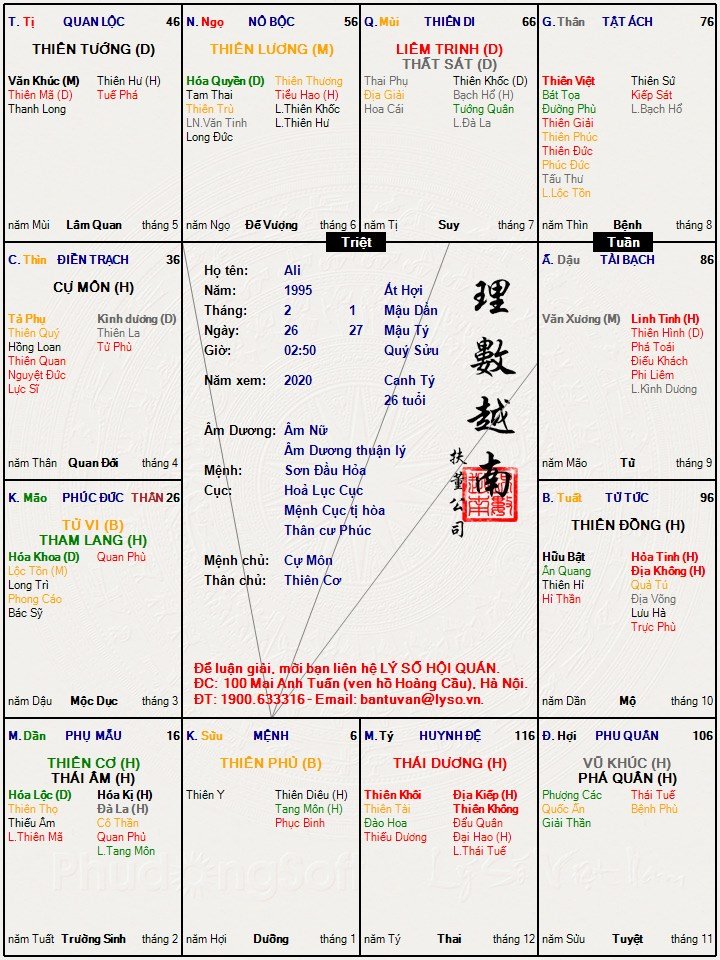 T. Tị QUAN LỘC 46
THIÊN TƯỚNG (D)
Văn Khúc (M) Thiên Hư (H)
Thiên Mã (D) Tuế Phá
Thanh Long
năm Mùi Lâm Quan tháng 5
N. Ngọ NÔ BỘC 56
THIÊN LƯƠNG (M)
Hóa Quyền (D) Thiên Thương
Tam Thai Tiểu Hao (H)
Thiên Trù L.Thiên Khốc
LN.Văn Tinh L.Thiên Hư
Long Đức
năm Ngọ Đế Vượng tháng 6
Q. Mùi THIÊN DI 66
LIÊM TRINH (D)
THẤT SÁT (D)
Thai Phụ Thiên Khốc (D)
Địa Giải Bạch Hổ (H)
Hoa Cái Tướng Quân
L.Đà La
năm Tị Suy tháng 7
G. Thân TẬT ÁCH 76
Thiên Việt Thiên Sứ
Bát Tọa Kiếp Sát
Đường Phù L.Bạch Hổ
Thiên Giải
Thiên Phúc
Thiên Đức
Phúc Đức
Tấu Thư
L.Lộc Tồn
năm Thìn Bệnh tháng 8
Triệt
Tuần
C. Thìn ĐIỀN TRẠCH 36
CỰ MÔN (H)
Tả Phụ Kình dương (D)
Thiên Quý Thiên La
Hồng Loan Tử Phù
Thiên Quan
Nguyệt Đức
Lực Sĩ
năm Thân Quan Đới tháng 4
Họ tên: Ali
Năm: 1995 Ất Hợi
Tháng: 2 1 Mậu Dần
Ngày: 26 27 Mậu Tý
Giờ: 02:50 Quý Sửu
Năm xem: 2020 Canh Tý
26 tuổi
Âm Dương: Âm Nữ
Âm Dương thuận lý
Mệnh: Sơn Đầu Hỏa
Cục: Hoả Lục Cục
Mệnh Cục tị hòa
Thân cư Phúc
Mệnh chủ: Cự Môn
Thân chủ: Thiên Cơ
理數越南
扶董公司
Để luận giải, mời bạn liên hệ LÝ SỐ HỘI QUÁN.
ĐC: 100 Mai Anh Tuấn (ven hồ Hoàng Cầu), Hà Nội.
ĐT: 1900.633316 - Email: bantuvan@lyso.vn.
Ấ. Dậu TÀI BẠCH 86
Văn Xương (M) Linh Tinh (H)
Thiên Hình (D)
Phá Toái
Điếu Khách
Phi Liêm
L.Kình Dương
năm Mão Tử tháng 9
K. Mão PHÚC ĐỨC THÂN 26
TỬ VI (B)
THAM LANG (H)
Hóa Khoa (D) Quan Phủ
Lộc Tồn (M)
Long Trì
Phong Cáo
Bác Sỹ
năm Dậu Mộc Dục tháng 3
B. Tuất TỬ TỨC 96
THIÊN ĐỒNG (H)
Hữu Bật Hỏa Tinh (H)
Ân Quang Địa Không (H)
Thiên Hỉ Quả Tú
Hỉ Thần Địa Võng
Lưu Hà
Trực Phù
năm Dần Mộ tháng 10
M. Dần PHỤ MẪU 16
THIÊN CƠ (H)
THÁI ÂM (H)
Hóa Lộc (D) Hóa Kị (H)
Thiên Thọ Đà La (H)
Thiếu Âm Cô Thần
L.Thiên Mã Quan Phủ
L.Tang Môn
năm Tuất Trường Sinh tháng 2
K. Sửu MỆNH 6
THIÊN PHỦ (B)
Thiên Y Thiên Diêu (H)
Tang Môn (H)
Phục Binh
năm Hợi Dưỡng tháng 1
M. Tý HUYNH ĐỆ 116
THÁI DƯƠNG (H)
Thiên Khôi Địa Kiếp (H)
Thiên Tài Thiên Không
Đào Hoa Đẩu Quân
Thiếu Dương Đại Hao (H)
L.Thái Tuế
năm Tý Thai tháng 12
Đ. Hợi PHU QUÂN 106
VŨ KHÚC (H)
PHÁ QUÂN (H)
Phượng Các Thái Tuế
Quốc Ấn Bệnh Phù
Giải Thần
năm Sửu Tuyệt tháng 11
PhudongSoft
Lý Số Việt Nam